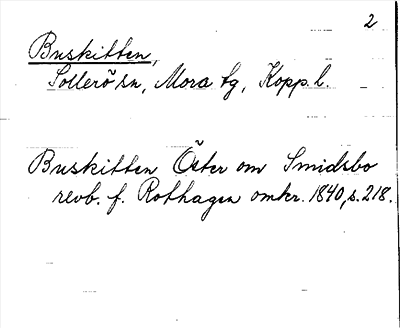 2
Buskitten,
Sollerö sn, Mora tg, Kopp. l.
Buskitten Öster om Smidsbo
revb. f. Rothagen omkr. 1840, s. 218.